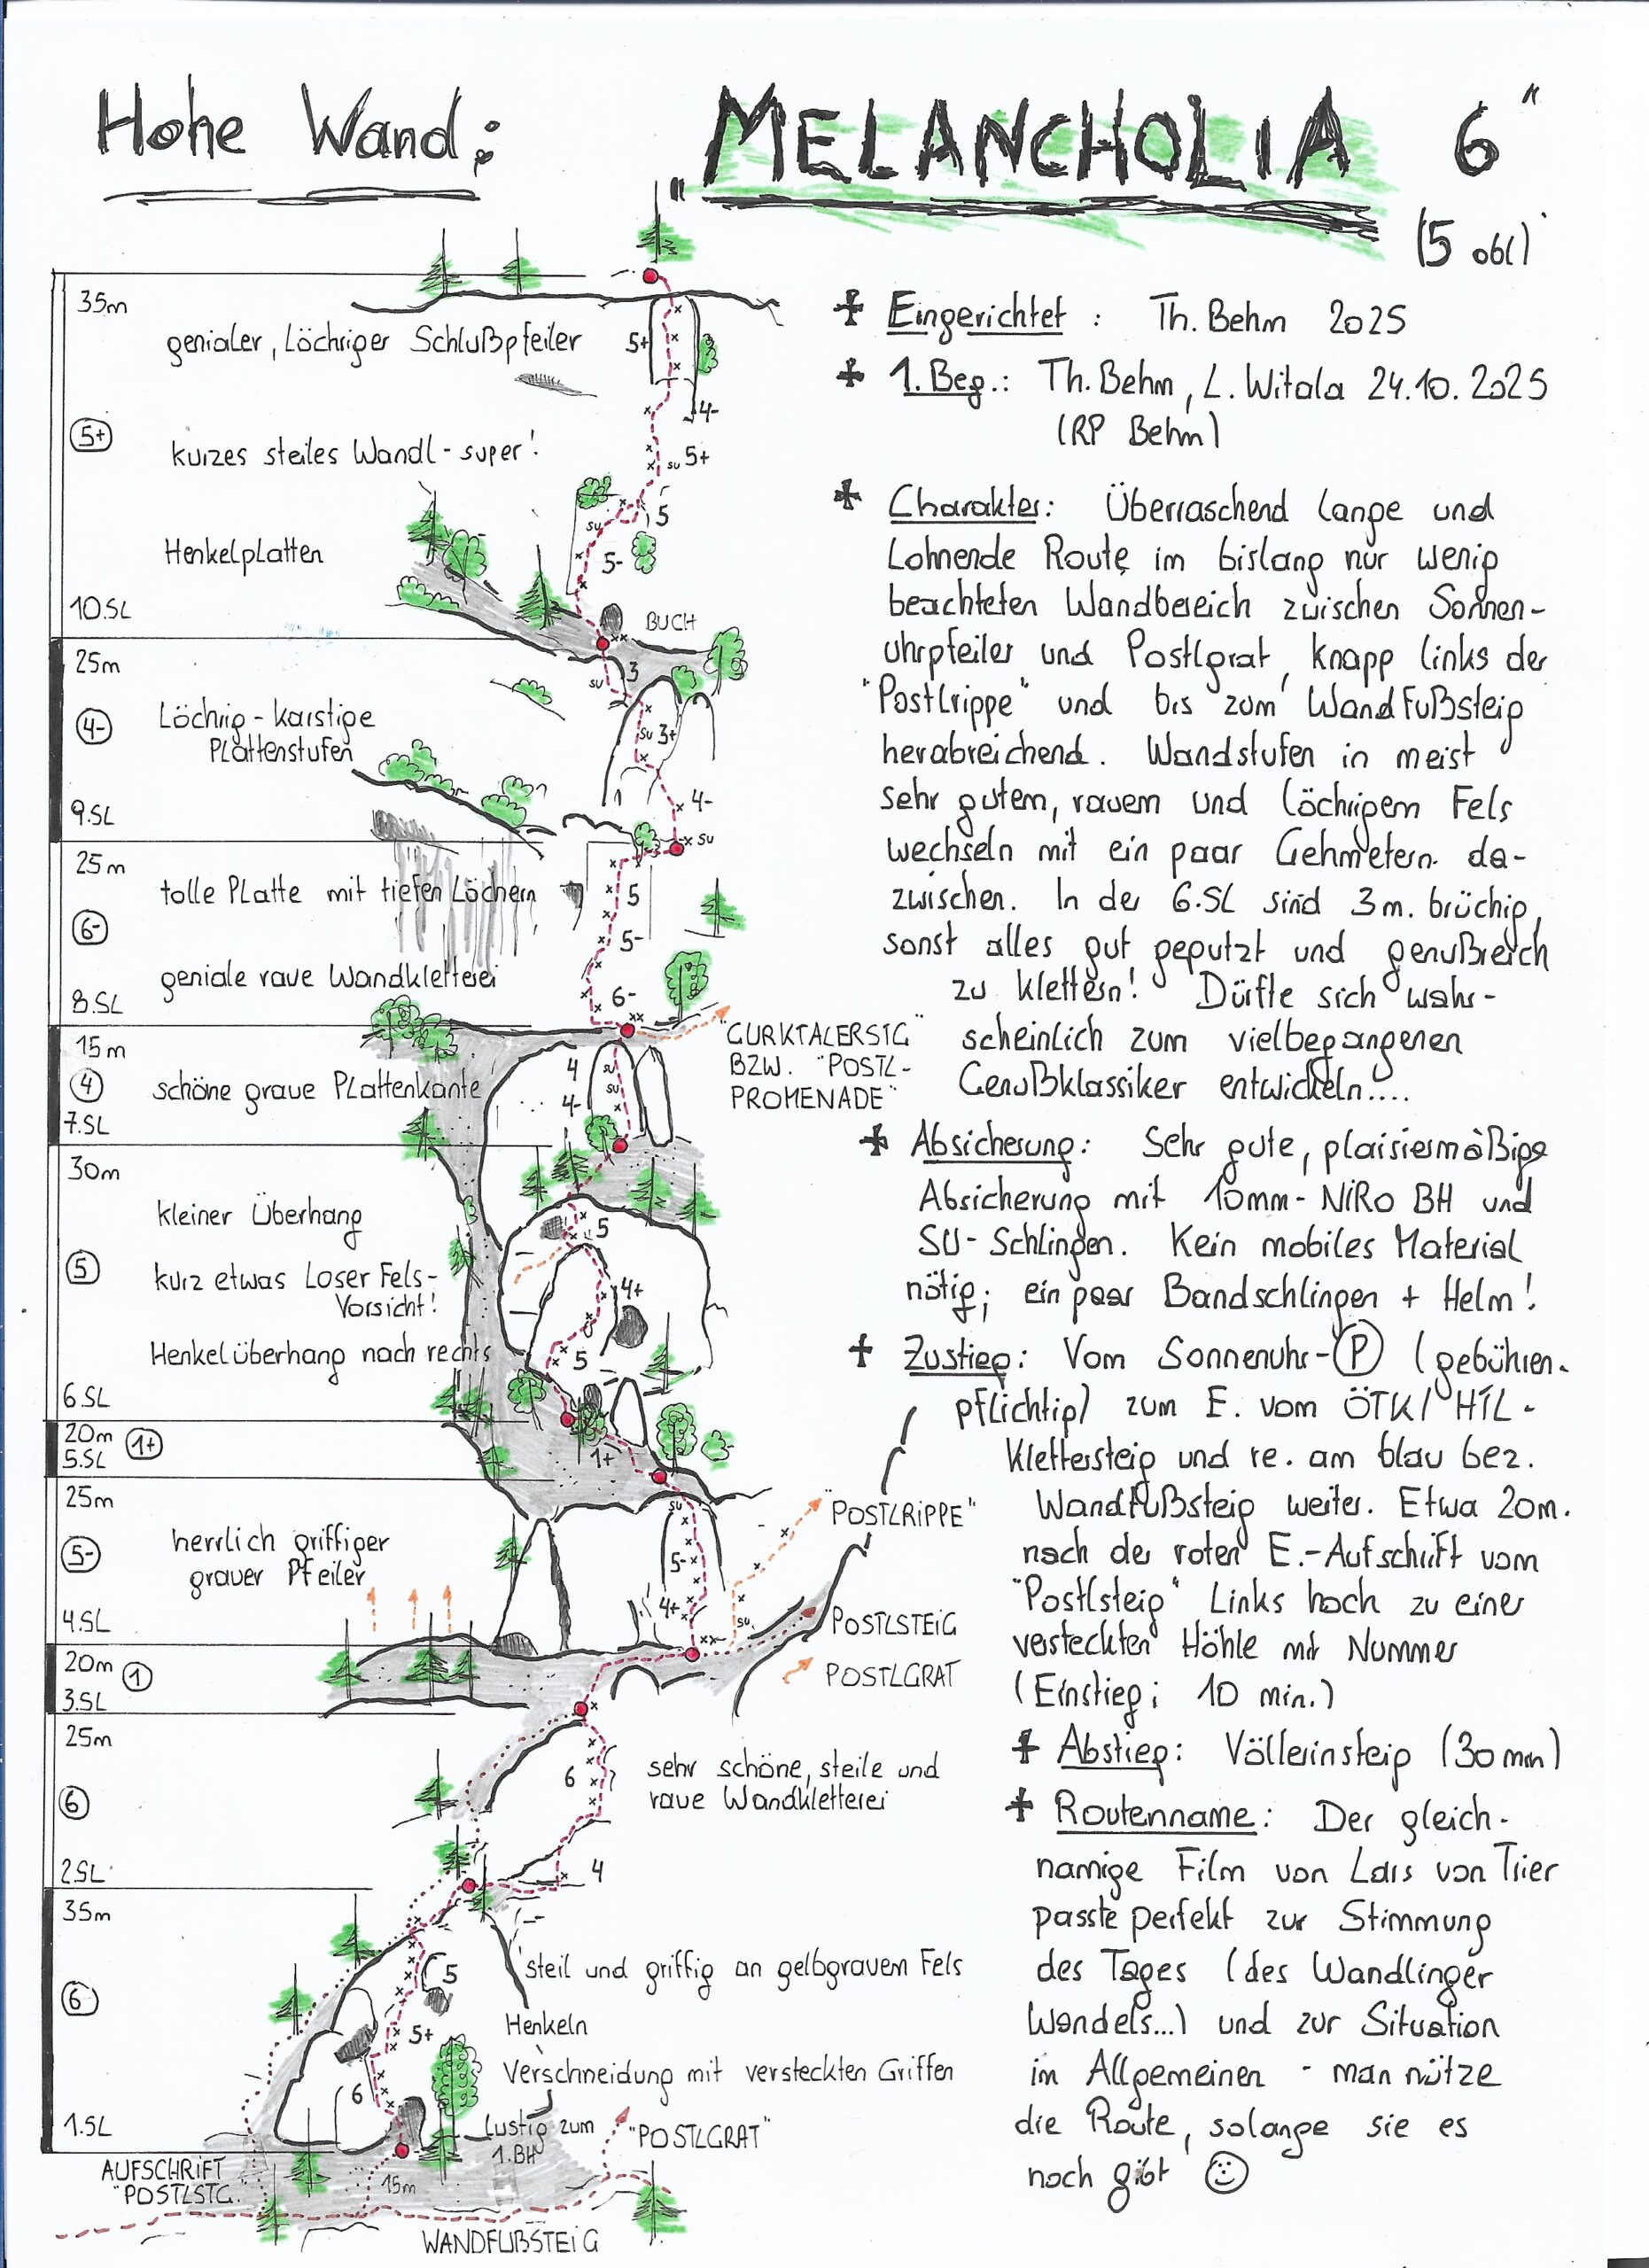 Hohe Wand:
"MELANCHOLIA 6"
(5 obl)
35m
genialer, Löchriger Schlußpfeiler
5+
4-
5+
kurzes steiles Wandl - super!
su 5+
5
su
Henkelplatten
5-
10.SL
BUCH
25m
3
su
4-
Löchrig - karstige
Plattenstufen
su 3+
4-
9.SL
su
25m
tolle Platte mit tiefen Löchern
5
6-
5-
geniale raue Wandkletterei
6-
8.SL
"GURKTALERSTG"
BZW. "POSTL-
PROMENADE"
15m
4
su
4
schöne graue Plattenkante
su
4-
7.SL
30m
kleiner Überhang
5
5
kurz etwas Loser Fels -
Vorsicht!
4+
Henkelüberhang nach rechts
5
6.SL
20m
1+
5.SL
1+
25m
su
"POSTLRIPPE"
herrlich griffiger
grauer Pfeiler
5-
5-
4+
su
4.SL
POSTLSTEIG
20m
1
POSTLGRAT
3.SL
25m
6
sehr schöne, steile und
raue Wandkletterei
6
2.SL
4
35m
steil und griffig an gelbgrauem Fels
5
6
Henkeln
5+
Verschneidung mit versteckten Griffen
6
1.SL
Lustig zum
1.BH
"POSTLGRAT"
AUFSCHRIFT
"POSTLSTG."
15m
WANDFUßSTEIG
Eingerichtet: Th. Behm 2025
1. Beg.: Th. Behm, L. Witala 24.10.2025
(RP Behm)
Charakter: Überraschend lange und
Lohnende Route im bislang nur wenig
beachteten Wandbereich zwischen Sonnen-
uhrpfeiler und Postlgrat, knapp links der
"Postlrippe" und bis zum Wandfußsteig
herabreichend. Wandstufen in meist
sehr gutem, rauem und löchrigem Fels
wechseln mit ein paar Gehmetern da-
zwischen. In der 6.SL sind 3m. brüchig,
sonst alles gut geputzt und genußreich
zu klettern! Dürfte sich wahr-
scheinlich zum vielbegangenen
Genußklassiker entwickeln....
Absicherung: Sehr gute, plaisiermäßige
Absicherung mit 10mm-NIRO BH und
SU-Schlingen. Kein mobiles Material
nötig; ein paar Bandschlingen + Helm!
Zustieg: Vom Sonnenuhr-P (gebühren-
pflichtig) zum E. vom ÖTK/HTL-
Klettersteig und re. am blau bez.
Wandfußsteig weiter. Etwa 20m.
nach der roten E.-Aufschrift vom
"Postlsteig" Links hoch zu einer
versteckten Höhle mit Nummer
(Einstieg; 10 min.)
Abstieg: Völlerinsteig (30 min)
Routenname: Der gleich-
namige Film von Lars von Trier
passte perfekt zur Stimmung
des Tages (des Wandlinger
Wandels...) und zur Situation
im Allgemeinen - man nütze
die Route, solange sie es
noch gibt